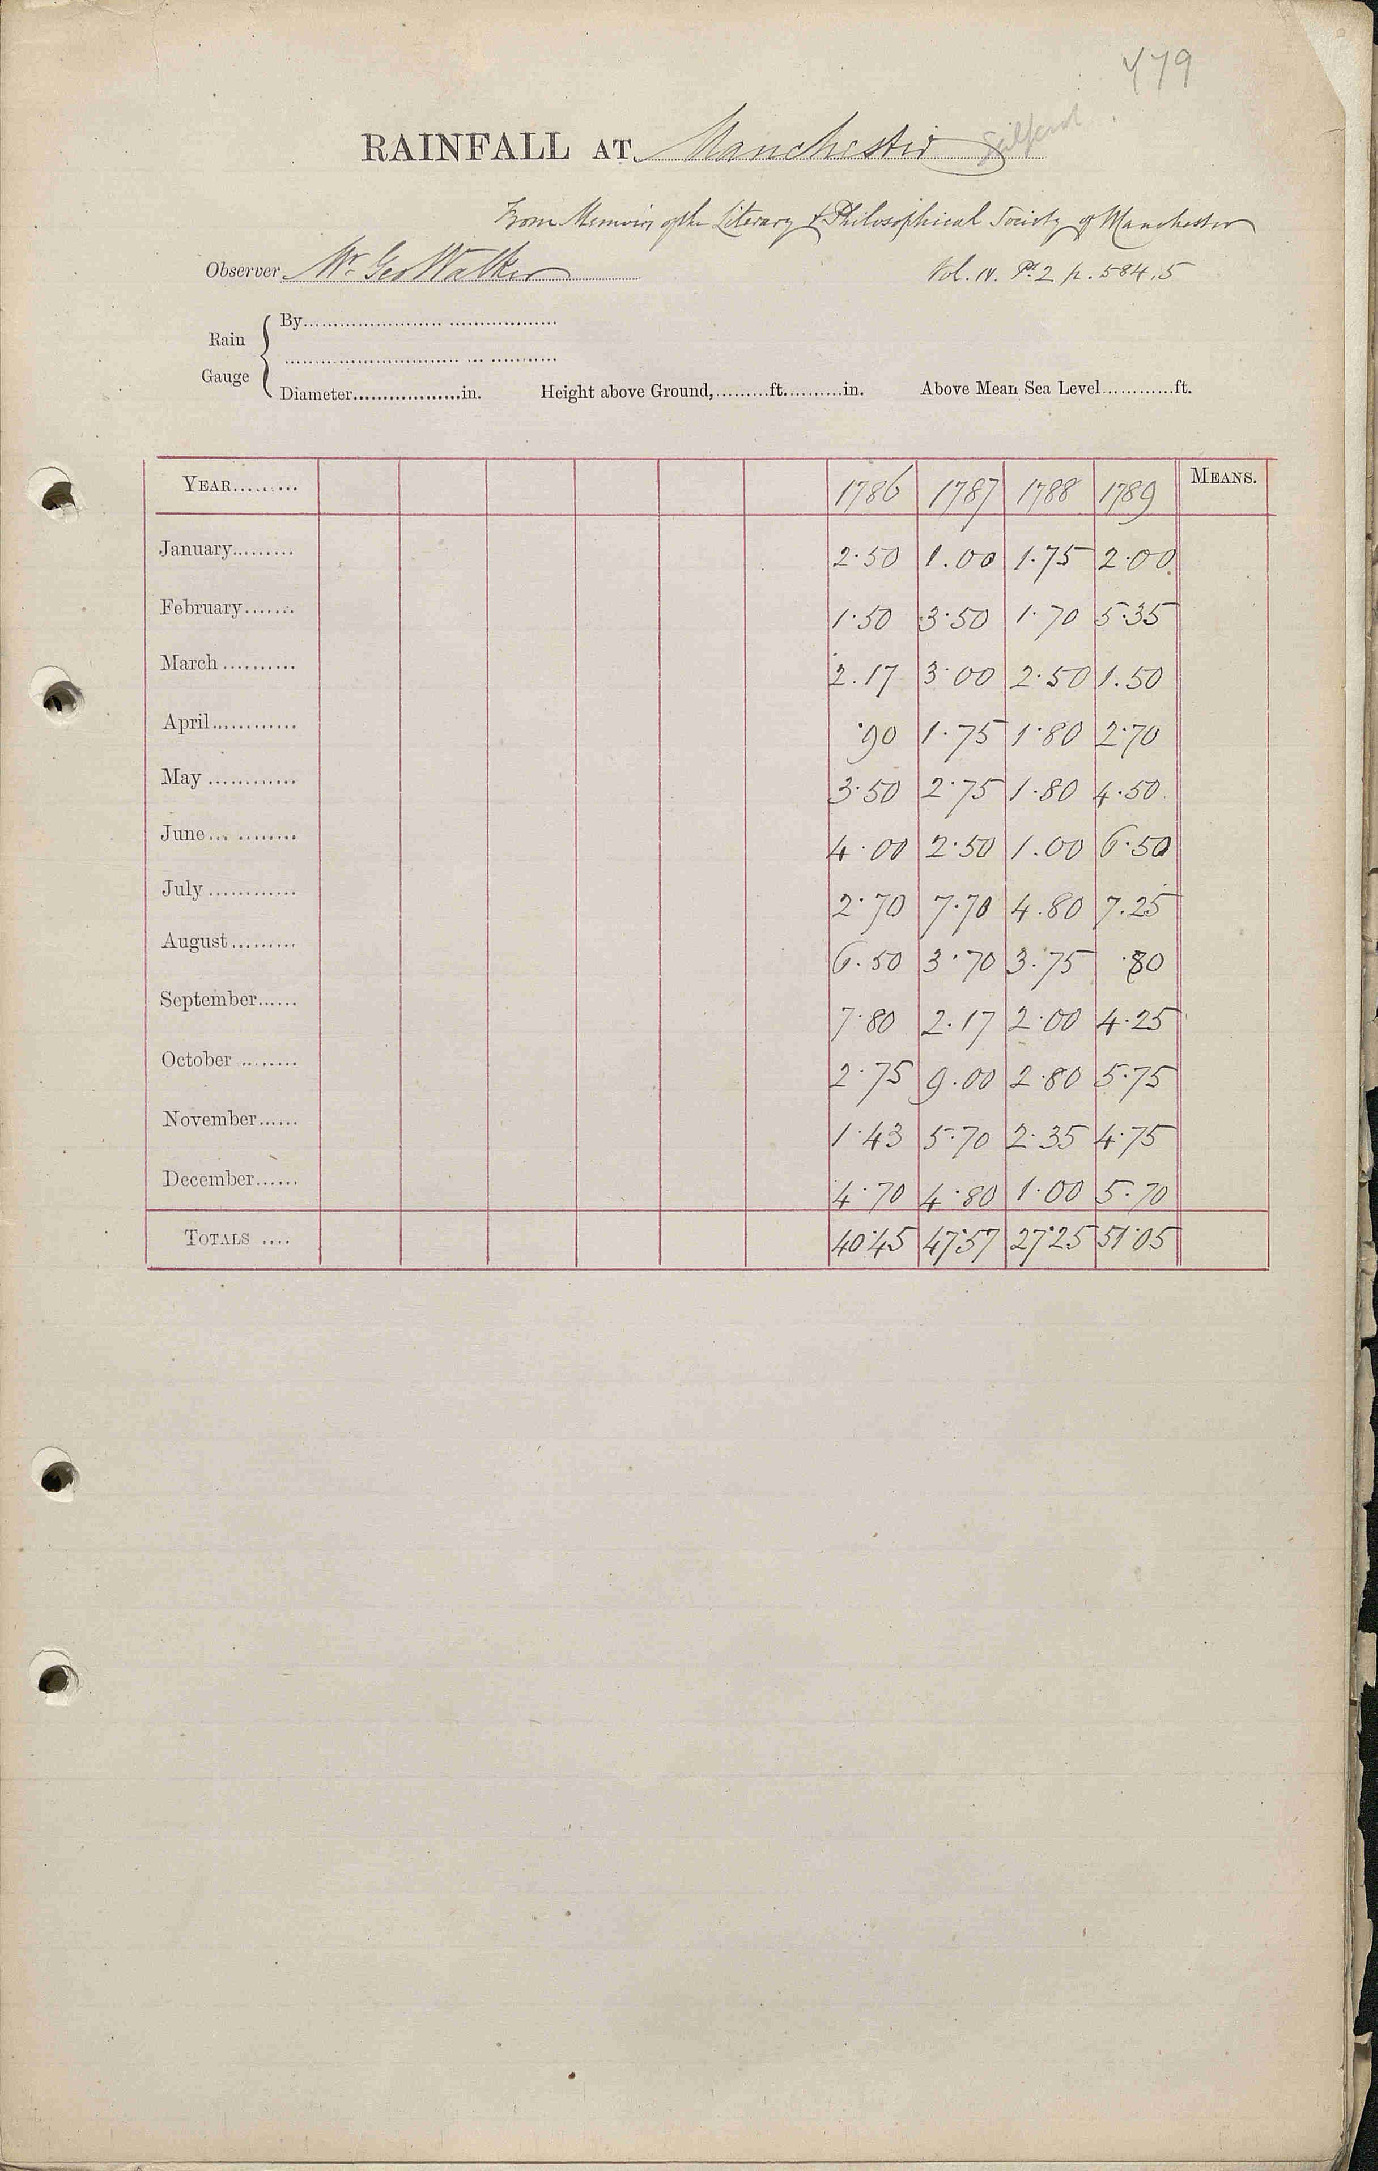 479
RAINFALL AT Manchester Salford
From Memoirs of the Literary & Philosophical Society of Manchester
Observer Mr. Geo Walker Vol. IV. Pt. 2 p. 584,5
Rain Gauge
By
Diameter in. Height above Ground, ft. in. Above Mean Sea Level ft.
YEAR 1786 1787 1788 1789 MEANS.
January 2.50 1.00 1.75 2.00
February 1.50 3.50 1.70 5.35
March 2.17 3.00 2.50 1.50
April .90 1.75 1.80 2.70
May 3.50 2.75 1.80 4.50
June 4.00 2.50 1.00 6.50
July 2.70 7.70 4.80 7.25
August 6.50 3.70 3.75 .80
September 7.80 2.17 2.00 4.25
October 2.75 9.00 2.80 5.75
November 1.43 5.70 2.35 4.75
December 4.70 4.80 1.00 5.70
TOTALS 40.45 47.57 27.25 51.05